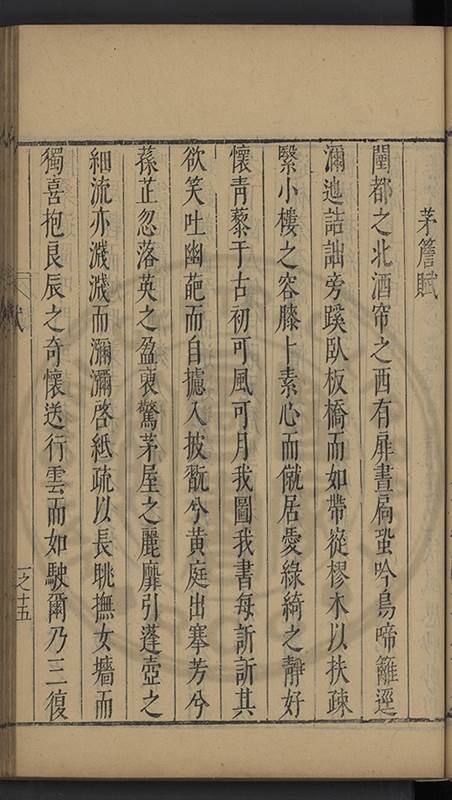 茅簷賦
闉都之北酒帘之西有扉晝扃蛩吟鳥啼籬逕
瀰迆詰詘旁蹊臥板橋而如帶從樛木以扶疎
繄小樓之容膝卜素心而僦居愛綠綺之靜好
懷青藜于古初可風可月我圖我書每訢訢其
欲笑吐幽葩而自攄入披翫兮黄庭出搴芳兮
蓀芷忽落英之盈裒驚茅屋之麗靡引蓬壺之
細流亦濺濺而瀰瀰啓紙疏以長眺撫女墻而
獨喜抱良辰之奇懷送行雲而如駛爾乃三復
賦
一之十五